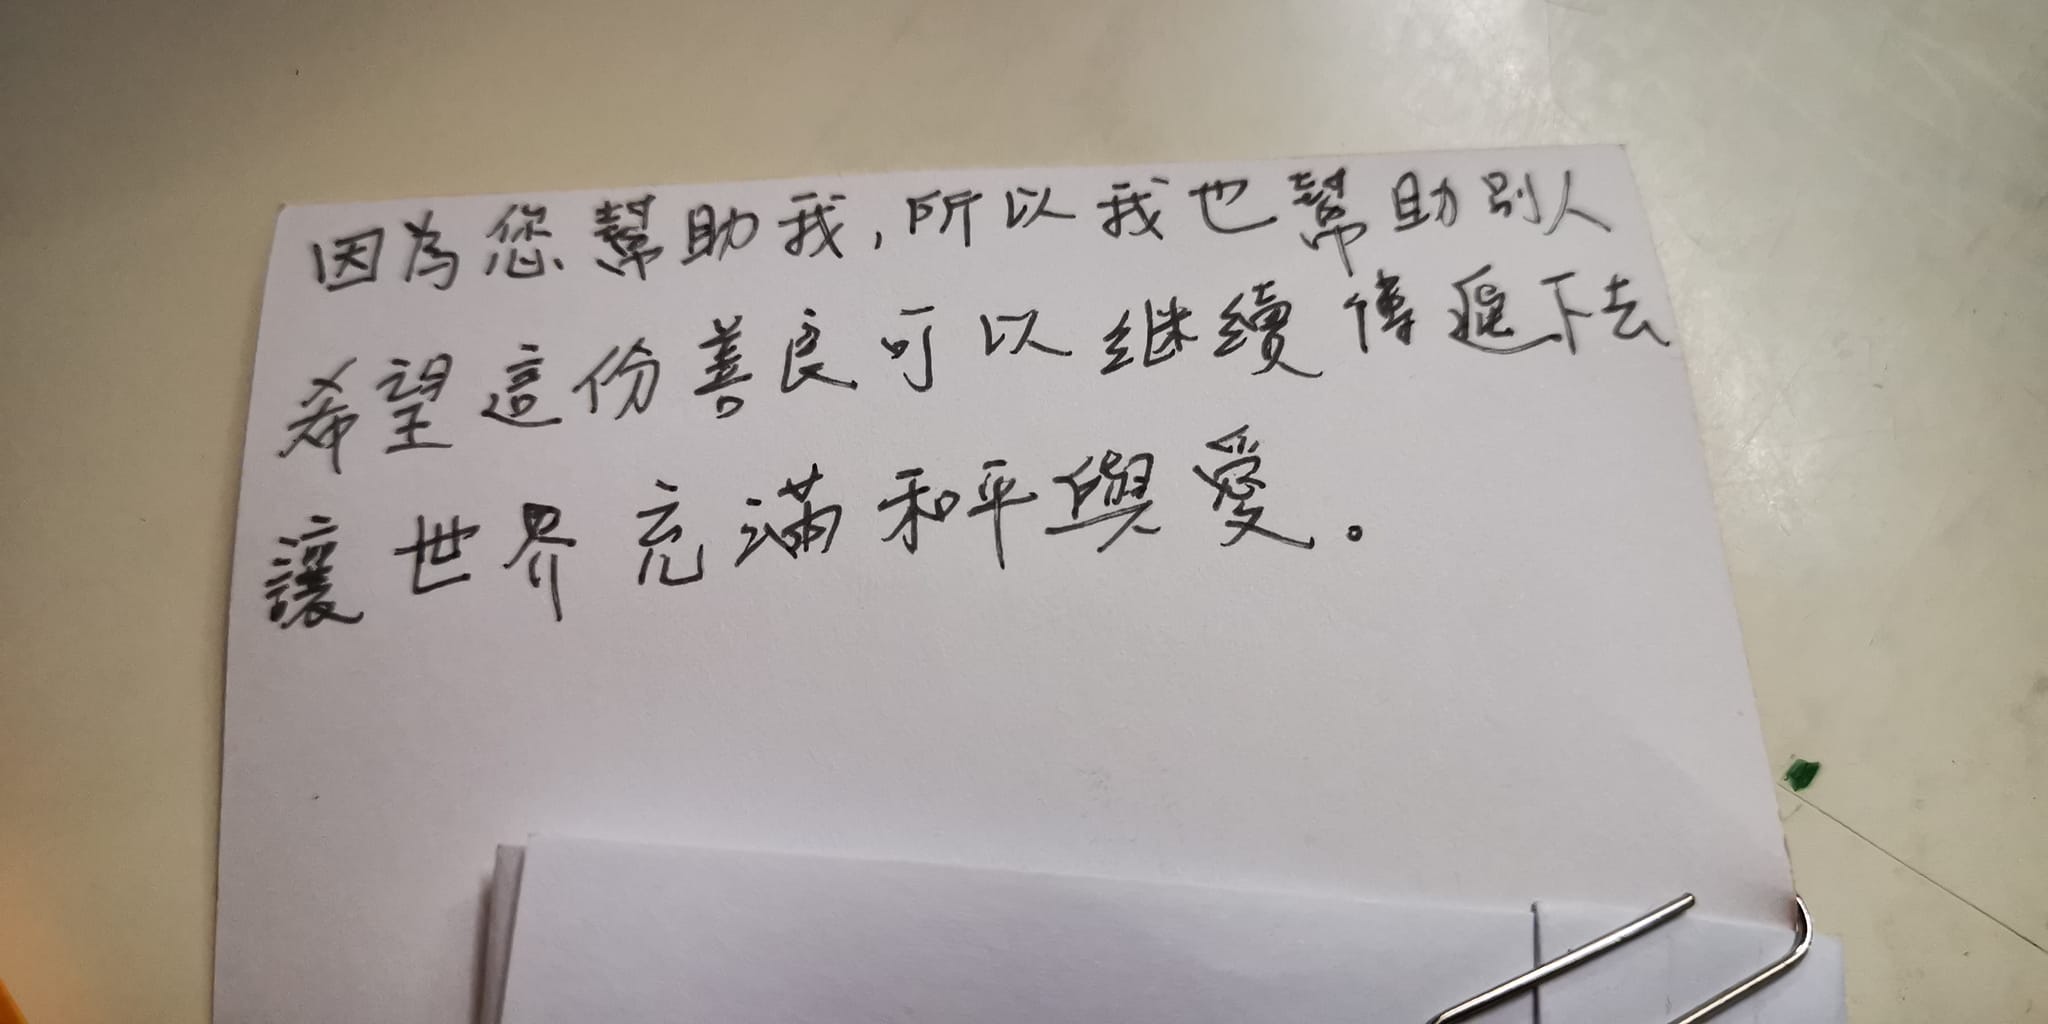 因為您幫助我,所以我也幫助別人
希望這份善良可以继續傳遞下去
讓世界充滿和平與愛。